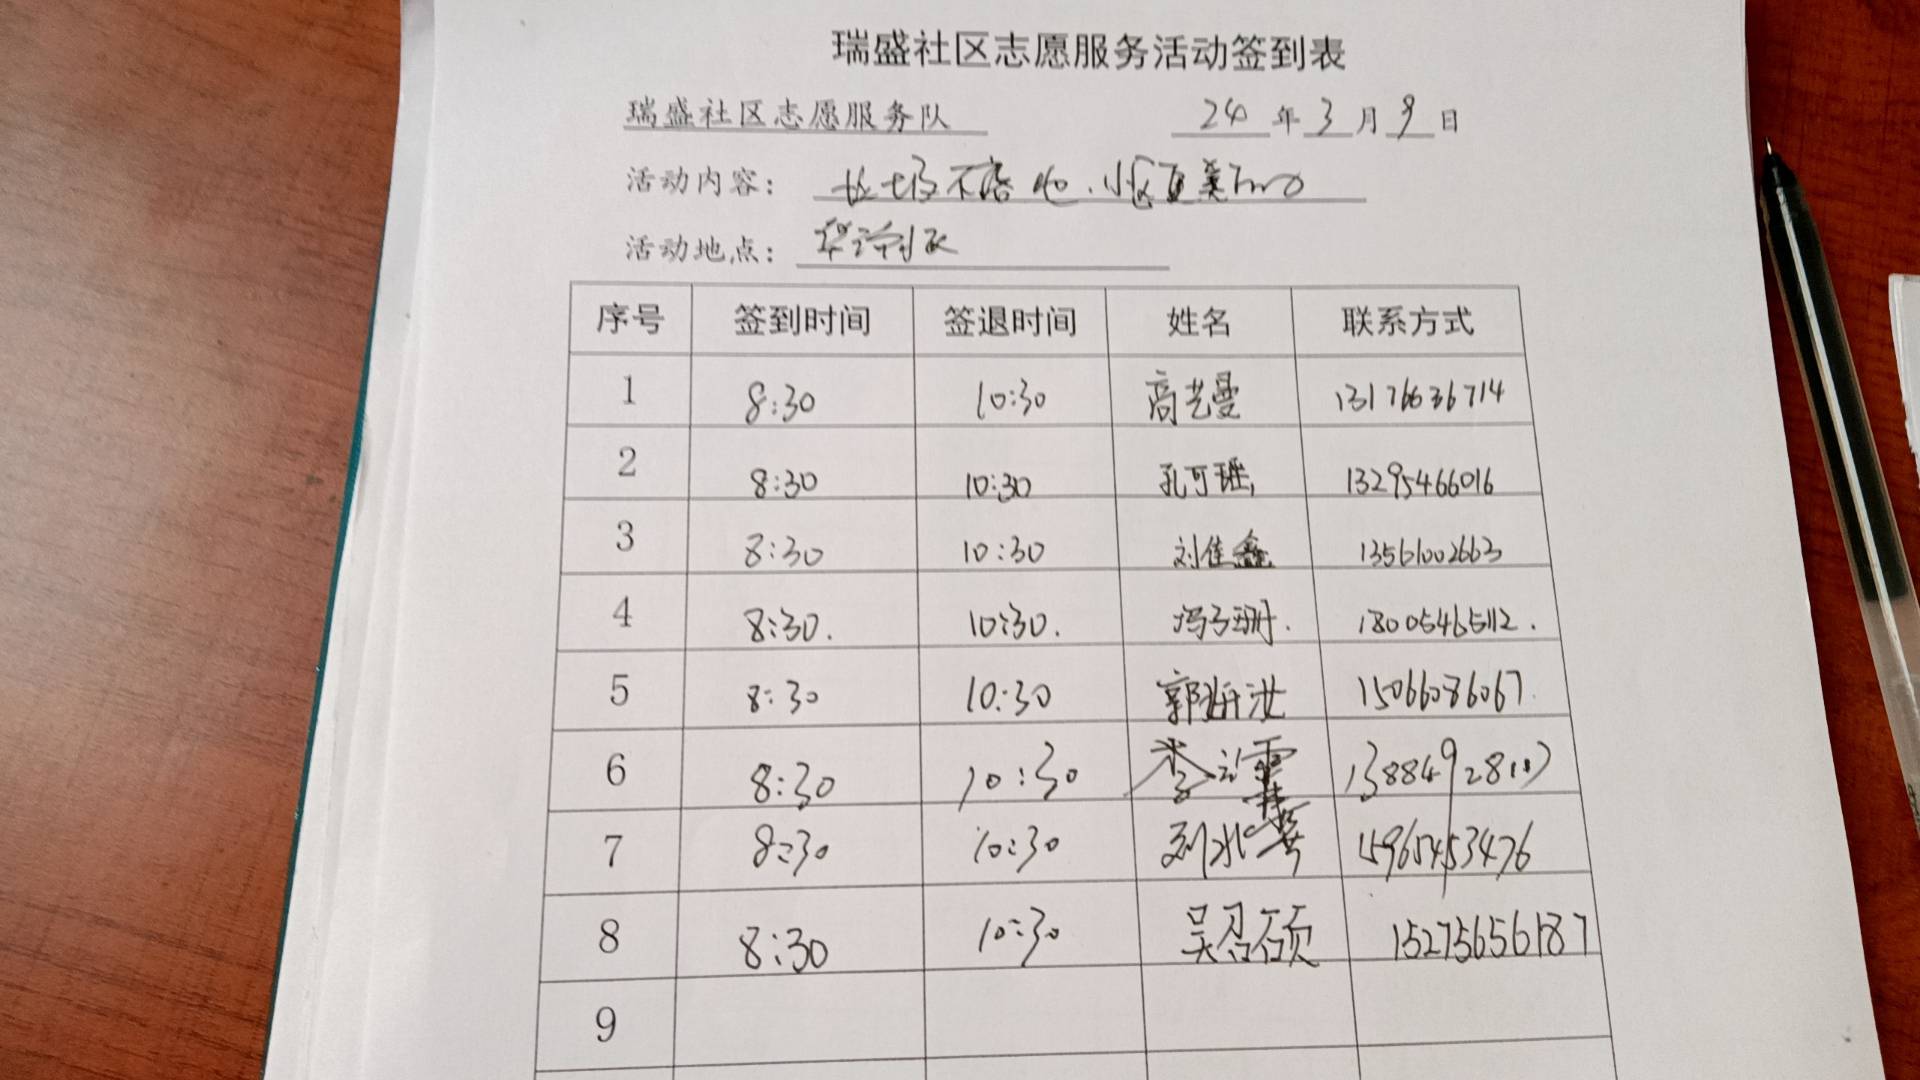 瑞盛社区志愿服务活动签到表
瑞盛社区志愿服务队 24年3月9日
活动内容：垃圾不落地.小区更美
活动地点：
序号 签到时间 签退时间 姓名 联系方式
1 8:30 10:30 商艺曼 13176636714
2 8:30 10:30 孔可瑶 13295466016
3 8:30 10:30 刘佳鑫 13561002663
4 8:30. 10:30. 冯子珊. 18005465112.
5 8:30 10:30 郭 15066086067
6 8:30 10:30 李
7 8:30 10:30 刘 15965453476
8 8:30 10:30 吴召硕 15275656187
9